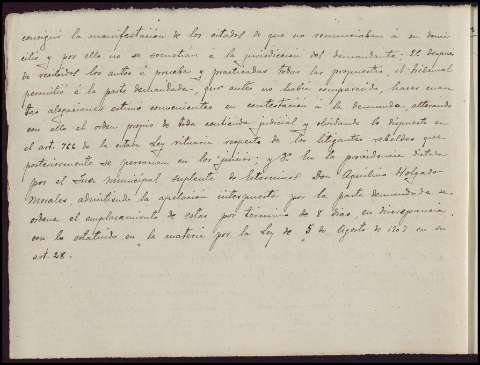 consiguió la manifestación de los citados de que no renunciaban á su domi
cilio y por ello no se sometían á la jurisdicción del demandante; 2º después
de recibidos los autos á prueba y practicadas todas las propuestas, el tribunal
permitió á la parte demandada, que antes no había comparecido, hacer cuan
tas alegaciones estimó convenientes en contestación á la demanda, alterando
con ello el orden propio de toda contienda judicial y olvidando lo dispuesto en
el art. 766 de la citada Ley rituaria respecto de los litigantes rebeldes que
posteriormente se personan en los juicios; y 3º En la providencia dictada
por el Juez municipal suplente de Don Aquilino Holgado
Morales admitiendo la apelación interpuesta por la parte demandada se
ordena el emplazamiento de estas por término de 8 días, en discrepancia,
con lo estatuido en la materia por la Ley de 5 de Agosto de 1907 en su
art. 28.